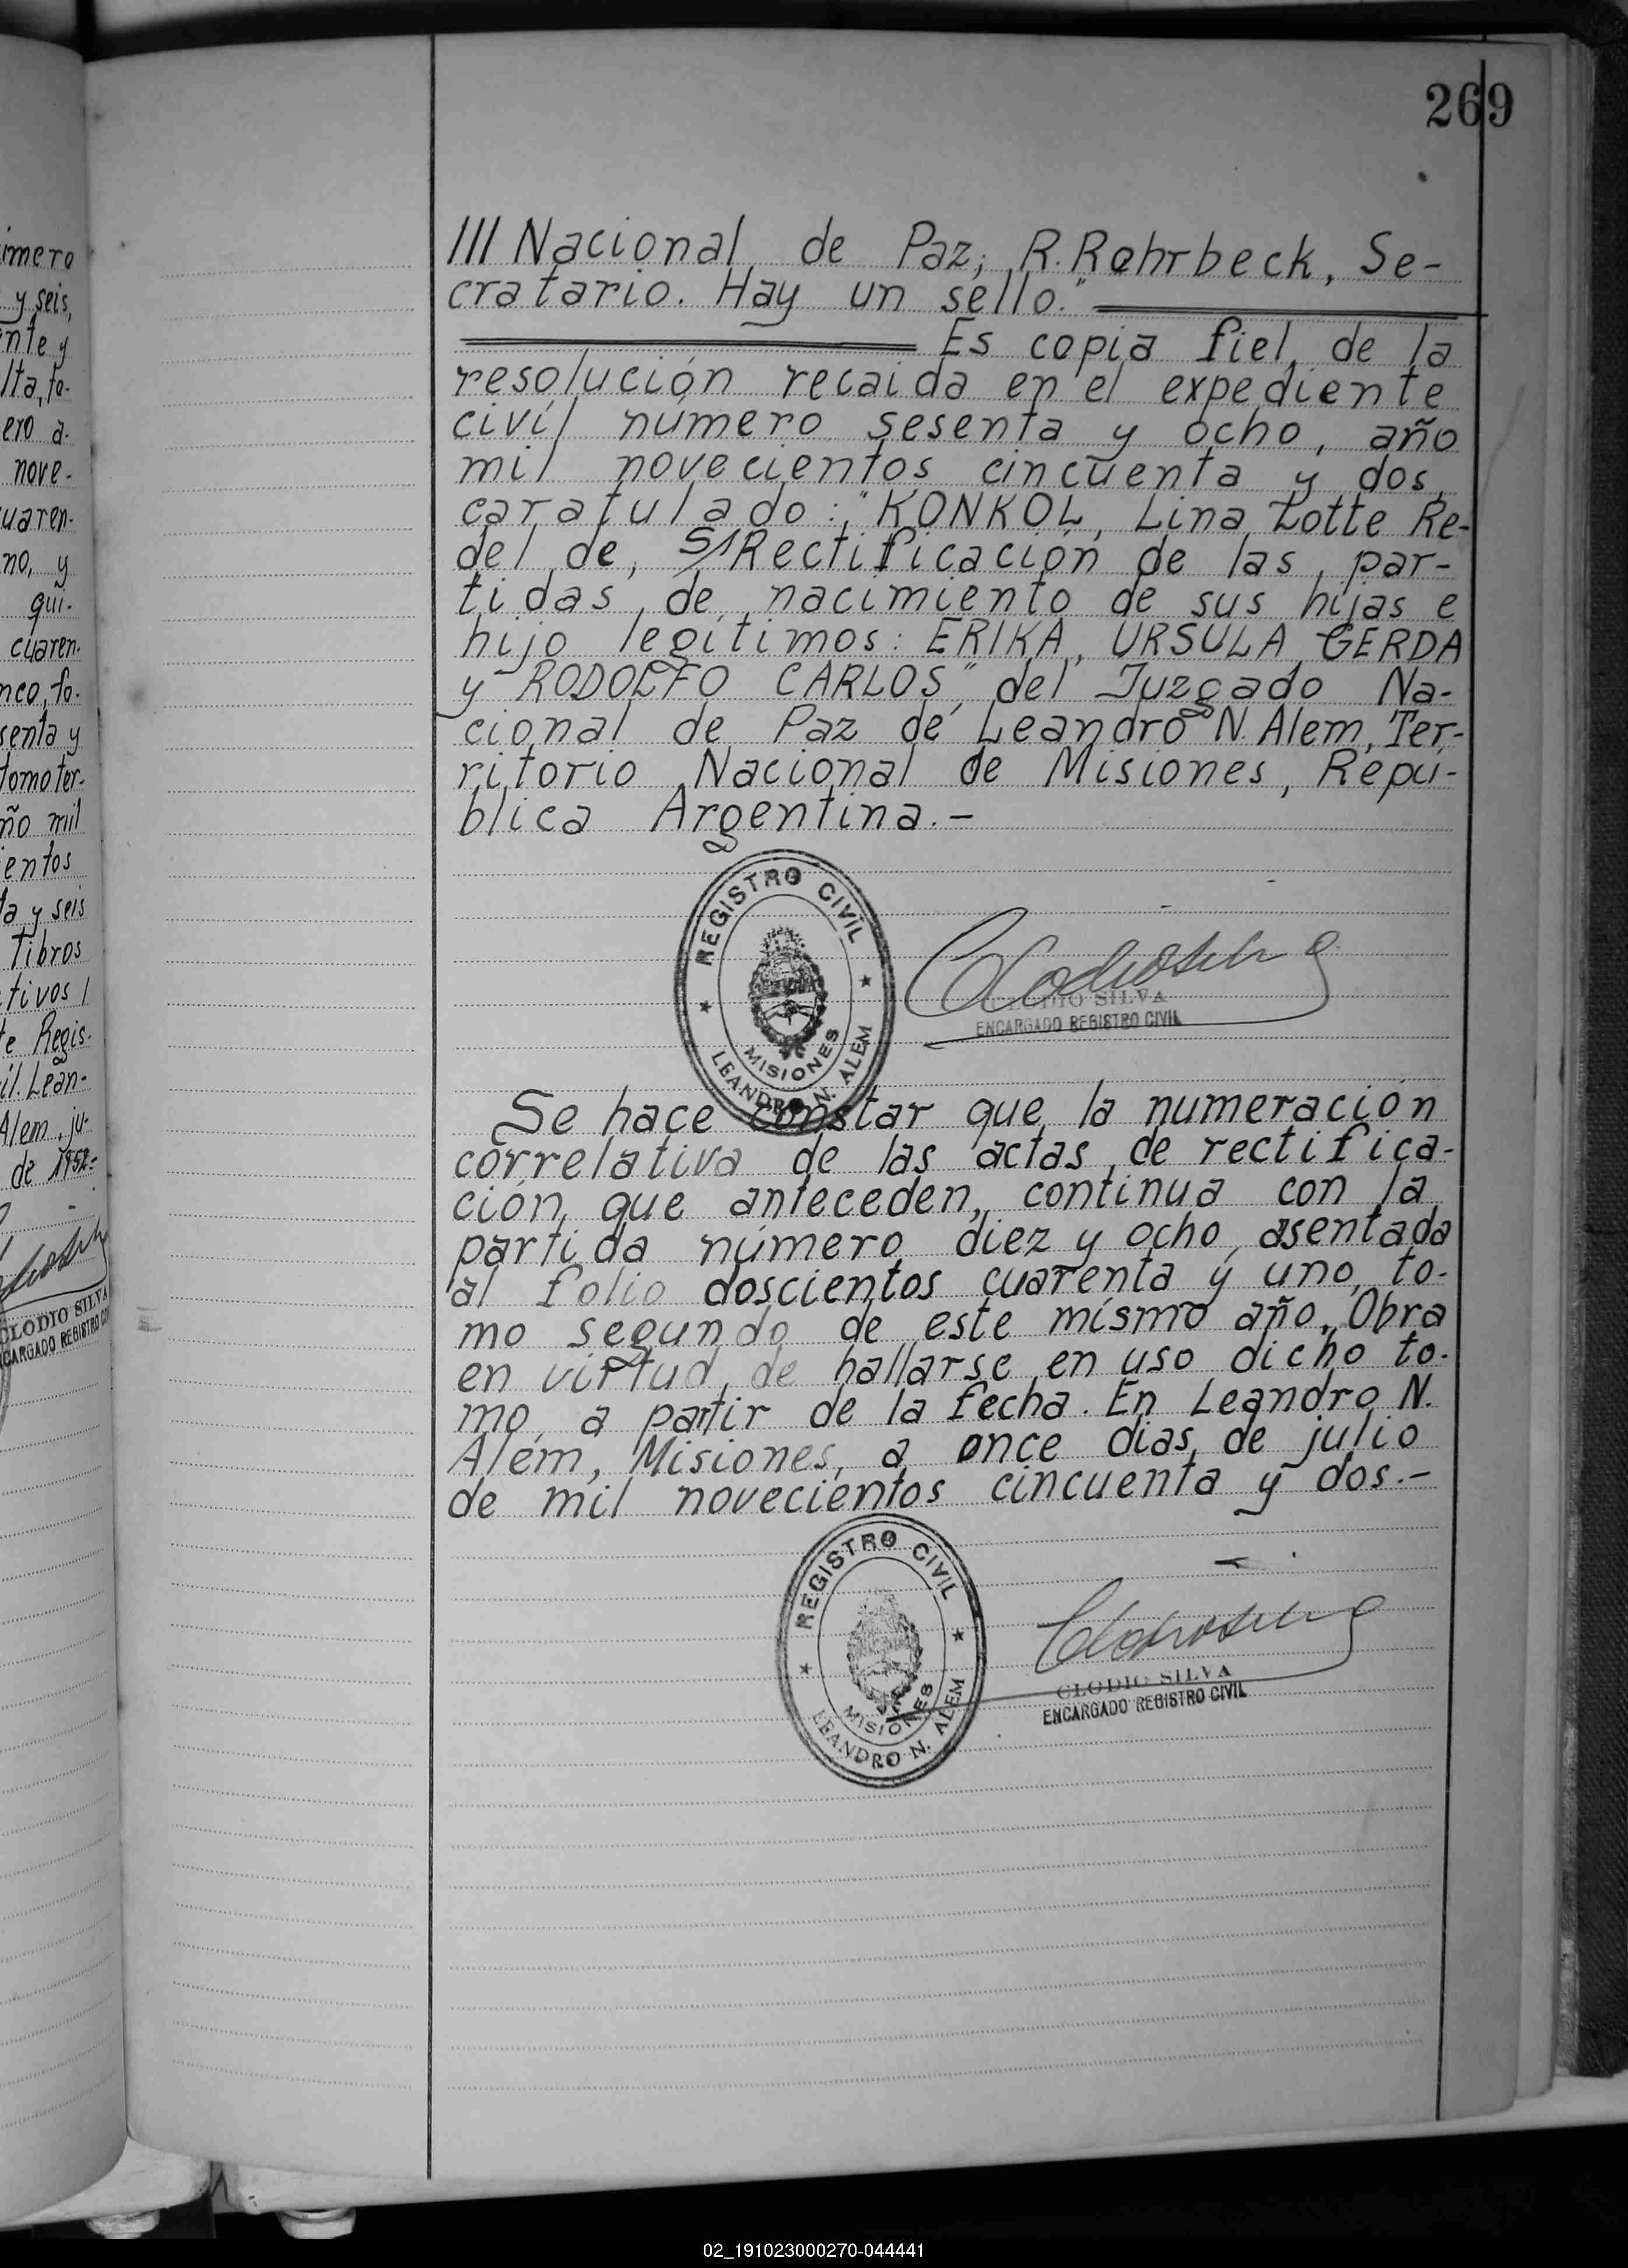 269
imero
y seis,
nte y
lta, to-
ero a-
nove-
uaren-
no, y
qui-
cuaren-
nco, fo-
senta y
tomo ter-
ño mil
ientos
ta y seis
Libros
tivos /
te Regis-
il. Lean-
Alem, ju-
de 1952-
CLODIO SILVA
ENCARGADO REGISTRO CIVIL
/// Nacional de Paz; R. Rohrbeck, Se-
cratario. Hay un sello."
Es copia fiel, de la
resolución recaida en el expediente
civil número sesenta y ocho, año
mil novecientos cincuenta y dos,
caratulado: "KONKOL, Lina Lotte Re-
del de, S/Rectificación de las par-
tidas de nacimiento de sus hijas e
hijo legítimos: ERIKA, URSULA GERDA
y RODOLFO CARLOS", del Juzgado Na-
cional de Paz de Leandro N. Alem, Ter-
ritorio Nacional de Misiones, Repú-
blica Argentina.-
REGISTRO CIVIL
MISIONES
LEANDRO N. ALEM
CLODIO SILVA
ENCARGADO REGISTRO CIVIL
Se hace constar que la numeración
correlativa de las actas de rectifica-
ción que anteceden, continua con la
partida número diez y ocho, asentada
al folio doscientos cuarenta y uno, to-
mo segundo de este mismo año. Obra
en virtud de hallarse en uso dicho to-
mo, a partir de la fecha. En Leandro N.
Alem, Misiones, a once dias de julio
de mil novecientos cincuenta y dos.-
REGISTRO CIVIL
MISIONES
LEANDRO N. ALEM
CLODIO SILVA
ENCARGADO REGISTRO CIVIL
02_191023000270-044441